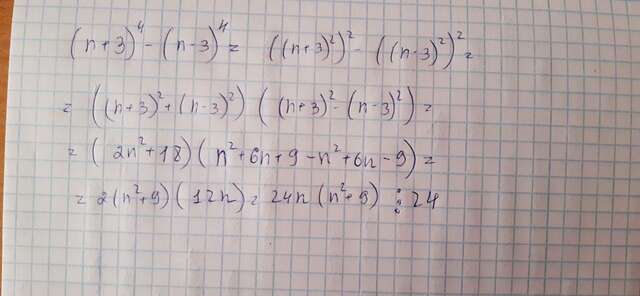 (n+3)⁴-(n-3)⁴= ((n+3)²)²-((n-3)²)²=
=((n+3)²+(n-3)²)((n+3)²-(n-3)²)=
=(2n²+18)(n²+6n+9-n²+6n-9)=
=2(n²+9)(12n)=24n(n²+9)⋮24